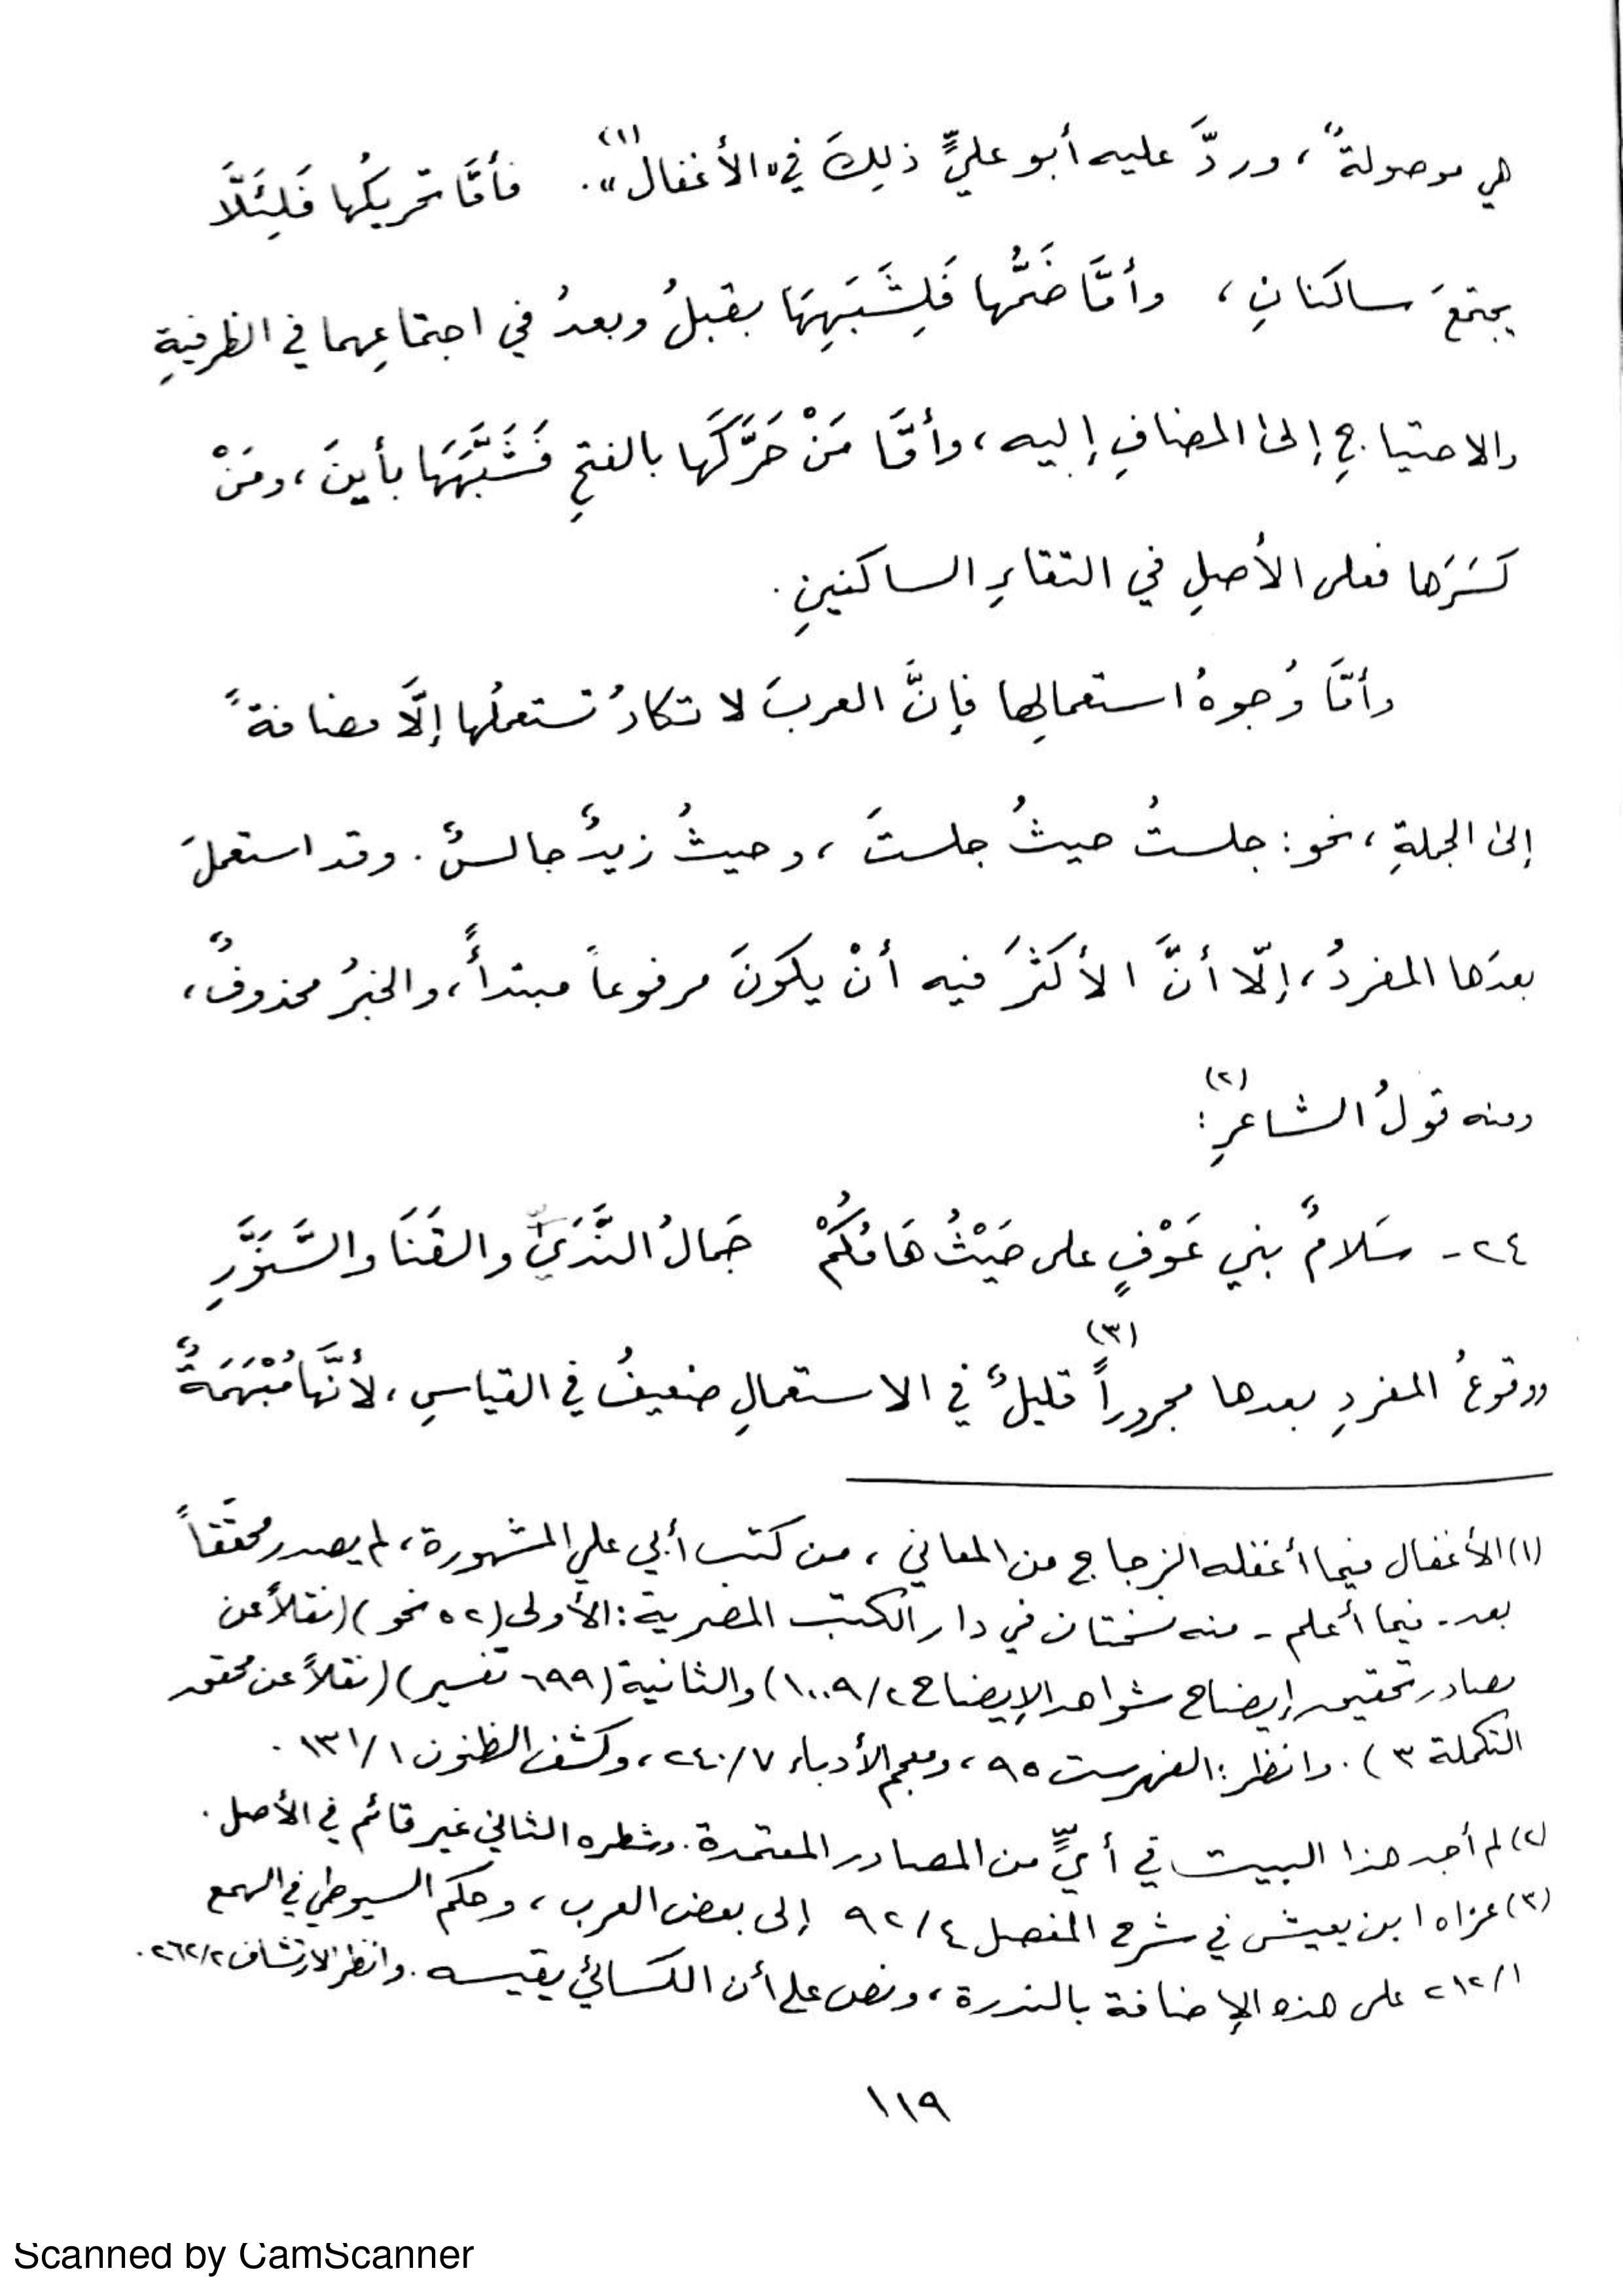 هي موصولةً، وردَّ عليه أبو عليٍّ ذلِكَ في «الأغفال(١)». فأمَّا تحريكُها فَلِئَلَّا
يجتمعَ ساكنانِ، وأمَّا ضَمُّها فَلِشَبَهِهَا بقبلُ وبعدُ في اجتماعِهما في الظرفيةِ
والاحتياجِ إلى المضافِ إليه، وأمَّا مَنْ حَرَّكَها بالفتحِ فَشَبَّهَهَا بأينَ، ومَنْ
كَسَرَها فعلى الأصلِ في التقاءِ الساكنينِ.
وأمَّا وُجوهُ استعمالِها فإنَّ العربَ لا تكادُ تستعملُها إلَّا مضافةً
إلى الجملةِ، نحو: جلستُ حيثُ جلستَ، وحيثُ زيدٌ جالسٌ. وقد استعملَ
بعدَها المفردُ، إلّا أنَّ الأكثرَ فيه أنْ يكونَ مرفوعاً مبتدأً، والخبرُ محذوفٌ،
ومنه قولُ الشاعرِ(٢):
٢٤- سَلامٌ بني عَوْفٍ على حَيْثُ هَامُكُمْ جَمالُ النَّدَيِّ والقَنَا والسَّنَوَّرِ
ووقوعُ المفردِ بعدها مجروراً(٣) قليلٌ في الاستعمالِ ضعيفُ في القياسِ، لأنَّها مُبْهَمَةٌ
(١) الأغفال فيما أغفله الزجاج من المعاني، من كتب أبي علي المشهورة، لم يصدر محقَّقاً
بعد - فيما أعلم - منه نسختان في دار الكتب المصرية: الأولى (٥٢ نحو) (نقلاً عن
مصادر تحقيق إيضاح شواهد الإيضاح ١٠٠٩/٢) والثانية (٦٩٩ تفسير) (نقلاً عن محقق
التكملة ٣). وانظر: الفهرست ٩٥، ومعجم الأدباء ٢٤٠/٧، وكشف الظنون ١٣١/١.
(٢) لم أجد هذا البيت في أيٍّ من المصادر المعتمدة. وشطره الثاني غير قائم في الأصل.
(٣) عزاه ابن يعيش في شرح المفصل ٩٢/٤ إلى بعض العرب، وحكم السيوطي في الهمع
٢١٢/١ على هذه الإضافة بالندرة، ونص على أن الكسائي يقيسه. وانظر الارتشاف ٢٦٢/٢.
١١٩
Scanned by CamScanner